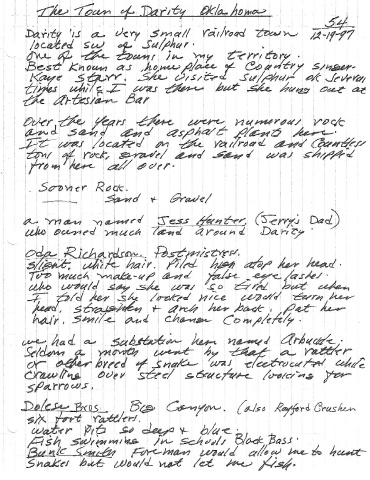 The Town of Darity Oklahoma
54
12-19-97
Darity is a very small railroad town
located sw of Sulphur.
One of the towns in my territory.
Best known as home place of Country singer-
Kaye Starr. She visited Sulphur ok Several
times while I was there but she hung out at
the Artesian Bar
Over the years there were numerous rock
and sand and asphalt plants here.
It was located on the railroad and Countless
tons of rock, gravel and sand was shipped
from here all over.
Sooner Rock.
Sand & Gravel
a man named Jess Hunter (Jerry's Dad)
who owned much land around Darity.
Oda Richardson. Postmistress.
Silent, white hair. Piled high atop her head.
Too much make-up and false eye lashes.
who would say she was so tired but when
I told her she looked nice would turn her
head, straighten & arch her back. Pat her
hair. Smile and change Completely.
we had a substation here named Arbuckle.
Seldom a month went by that a rattler
or other breed of snake was electrocuted while
crawling over steel structure looking for
sparrows.
Dolese Bros. Big Canyon. (also Rayford Crusher
six foot rattlers.
water pits so deep & blue.
Fish swimming in schools Black Bass.
Bunk Smith Foreman would allow me to hunt
snakes but would not let me fish.